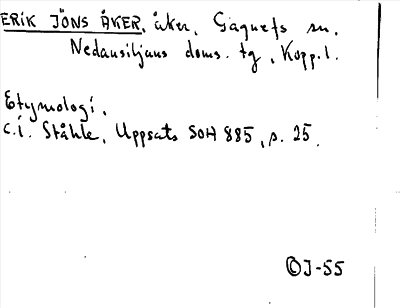 ERIK JÖNS ÅKER, åker, Gagnefs sn,
Nedansiljans doms. tg, Kopp. l.
Etymologi.
C.I. Ståhle, Uppsats SOH 885, s. 25.
©J-55